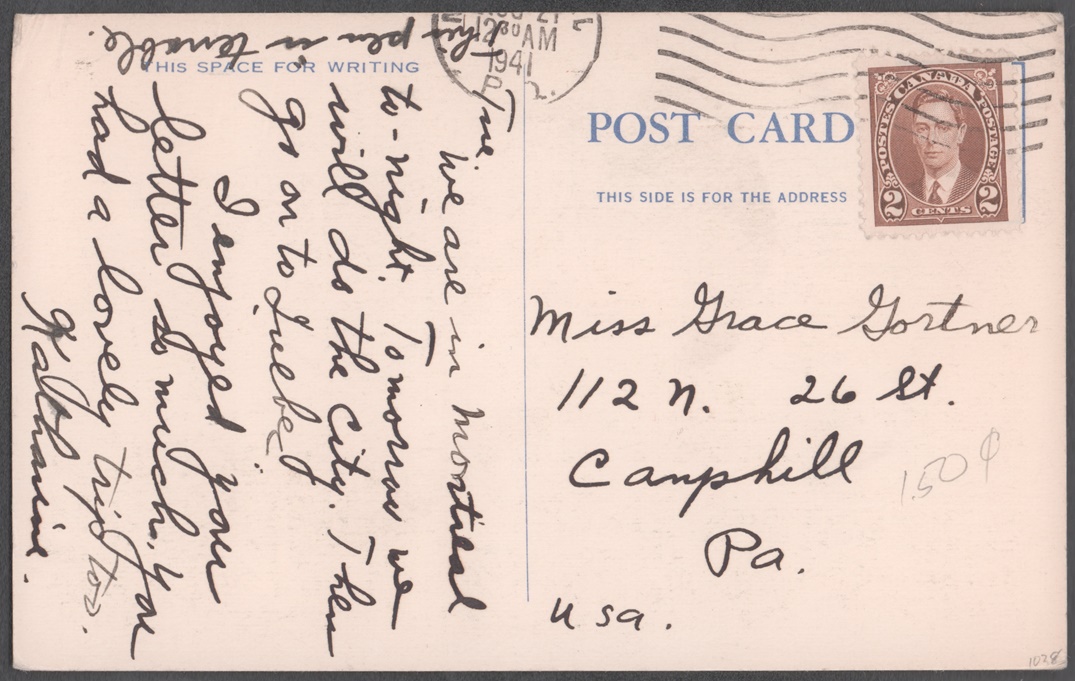 Tue.
We are in Montreal
to-night. Tomorrow we
will do the city. Then
go on to Quebec.
I enjoyed your
letter so much. You
had a lovely trip too.
Katharine.
This pen is terrible.
THIS SPACE FOR WRITING
12 30 AM
1941
P.Q.
POST CARD
THIS SIDE IS FOR THE ADDRESS
CANADA
POSTES POSTAGE
2 CENTS 2
Miss Grace Gortner
112 N. 26 St.
Camphill
Pa.
USA.
1.50¢
1028